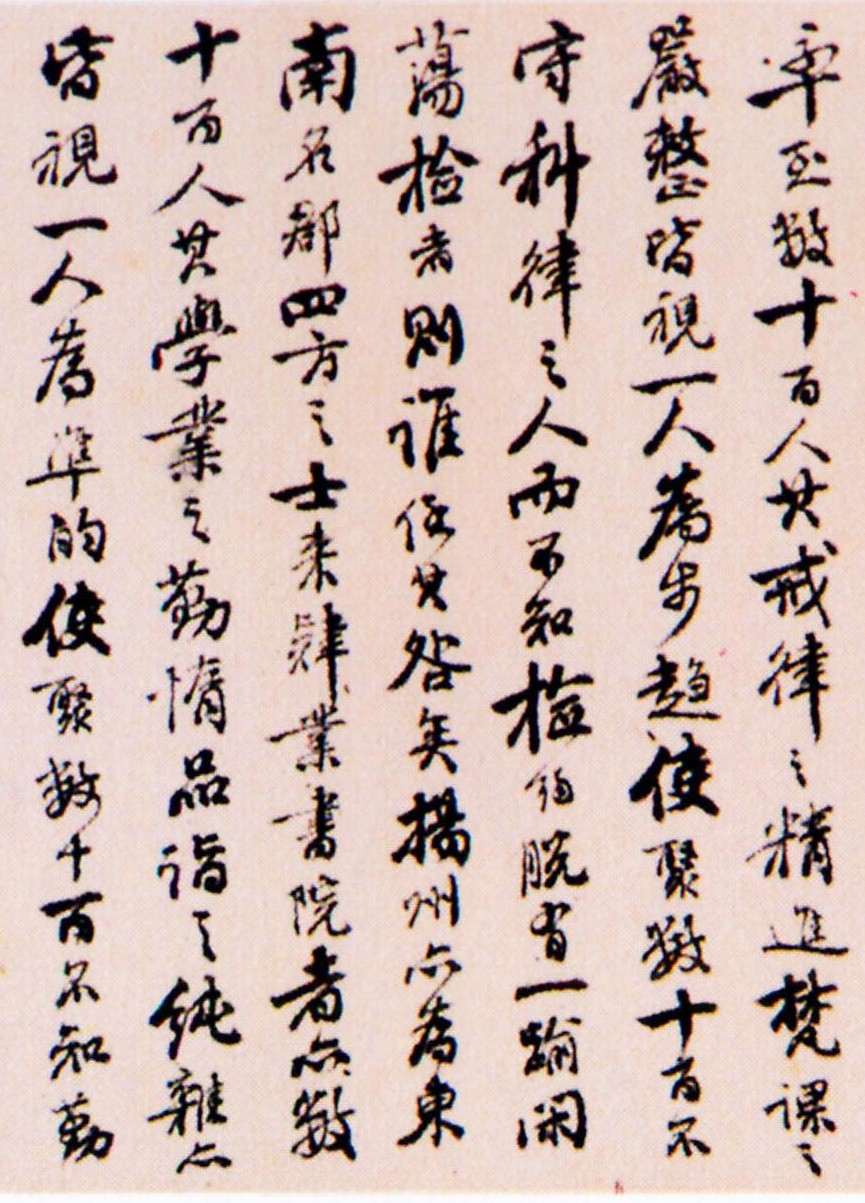 率至數十百人其戒律之精進梵課之
嚴整皆視一人為步趨使聚數十百不
守科律之人而不知檢約脫有一踰閑
蕩檢者則誰任其咎矣揚州亦為東
南名郡四方之士來肄業書院者亦數
十百人其學業之勤惰品詣之純雜亦
皆視一人為準的使聚數十百不知勤